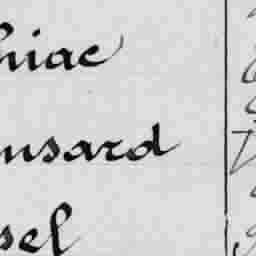 hiac
nsard
sel